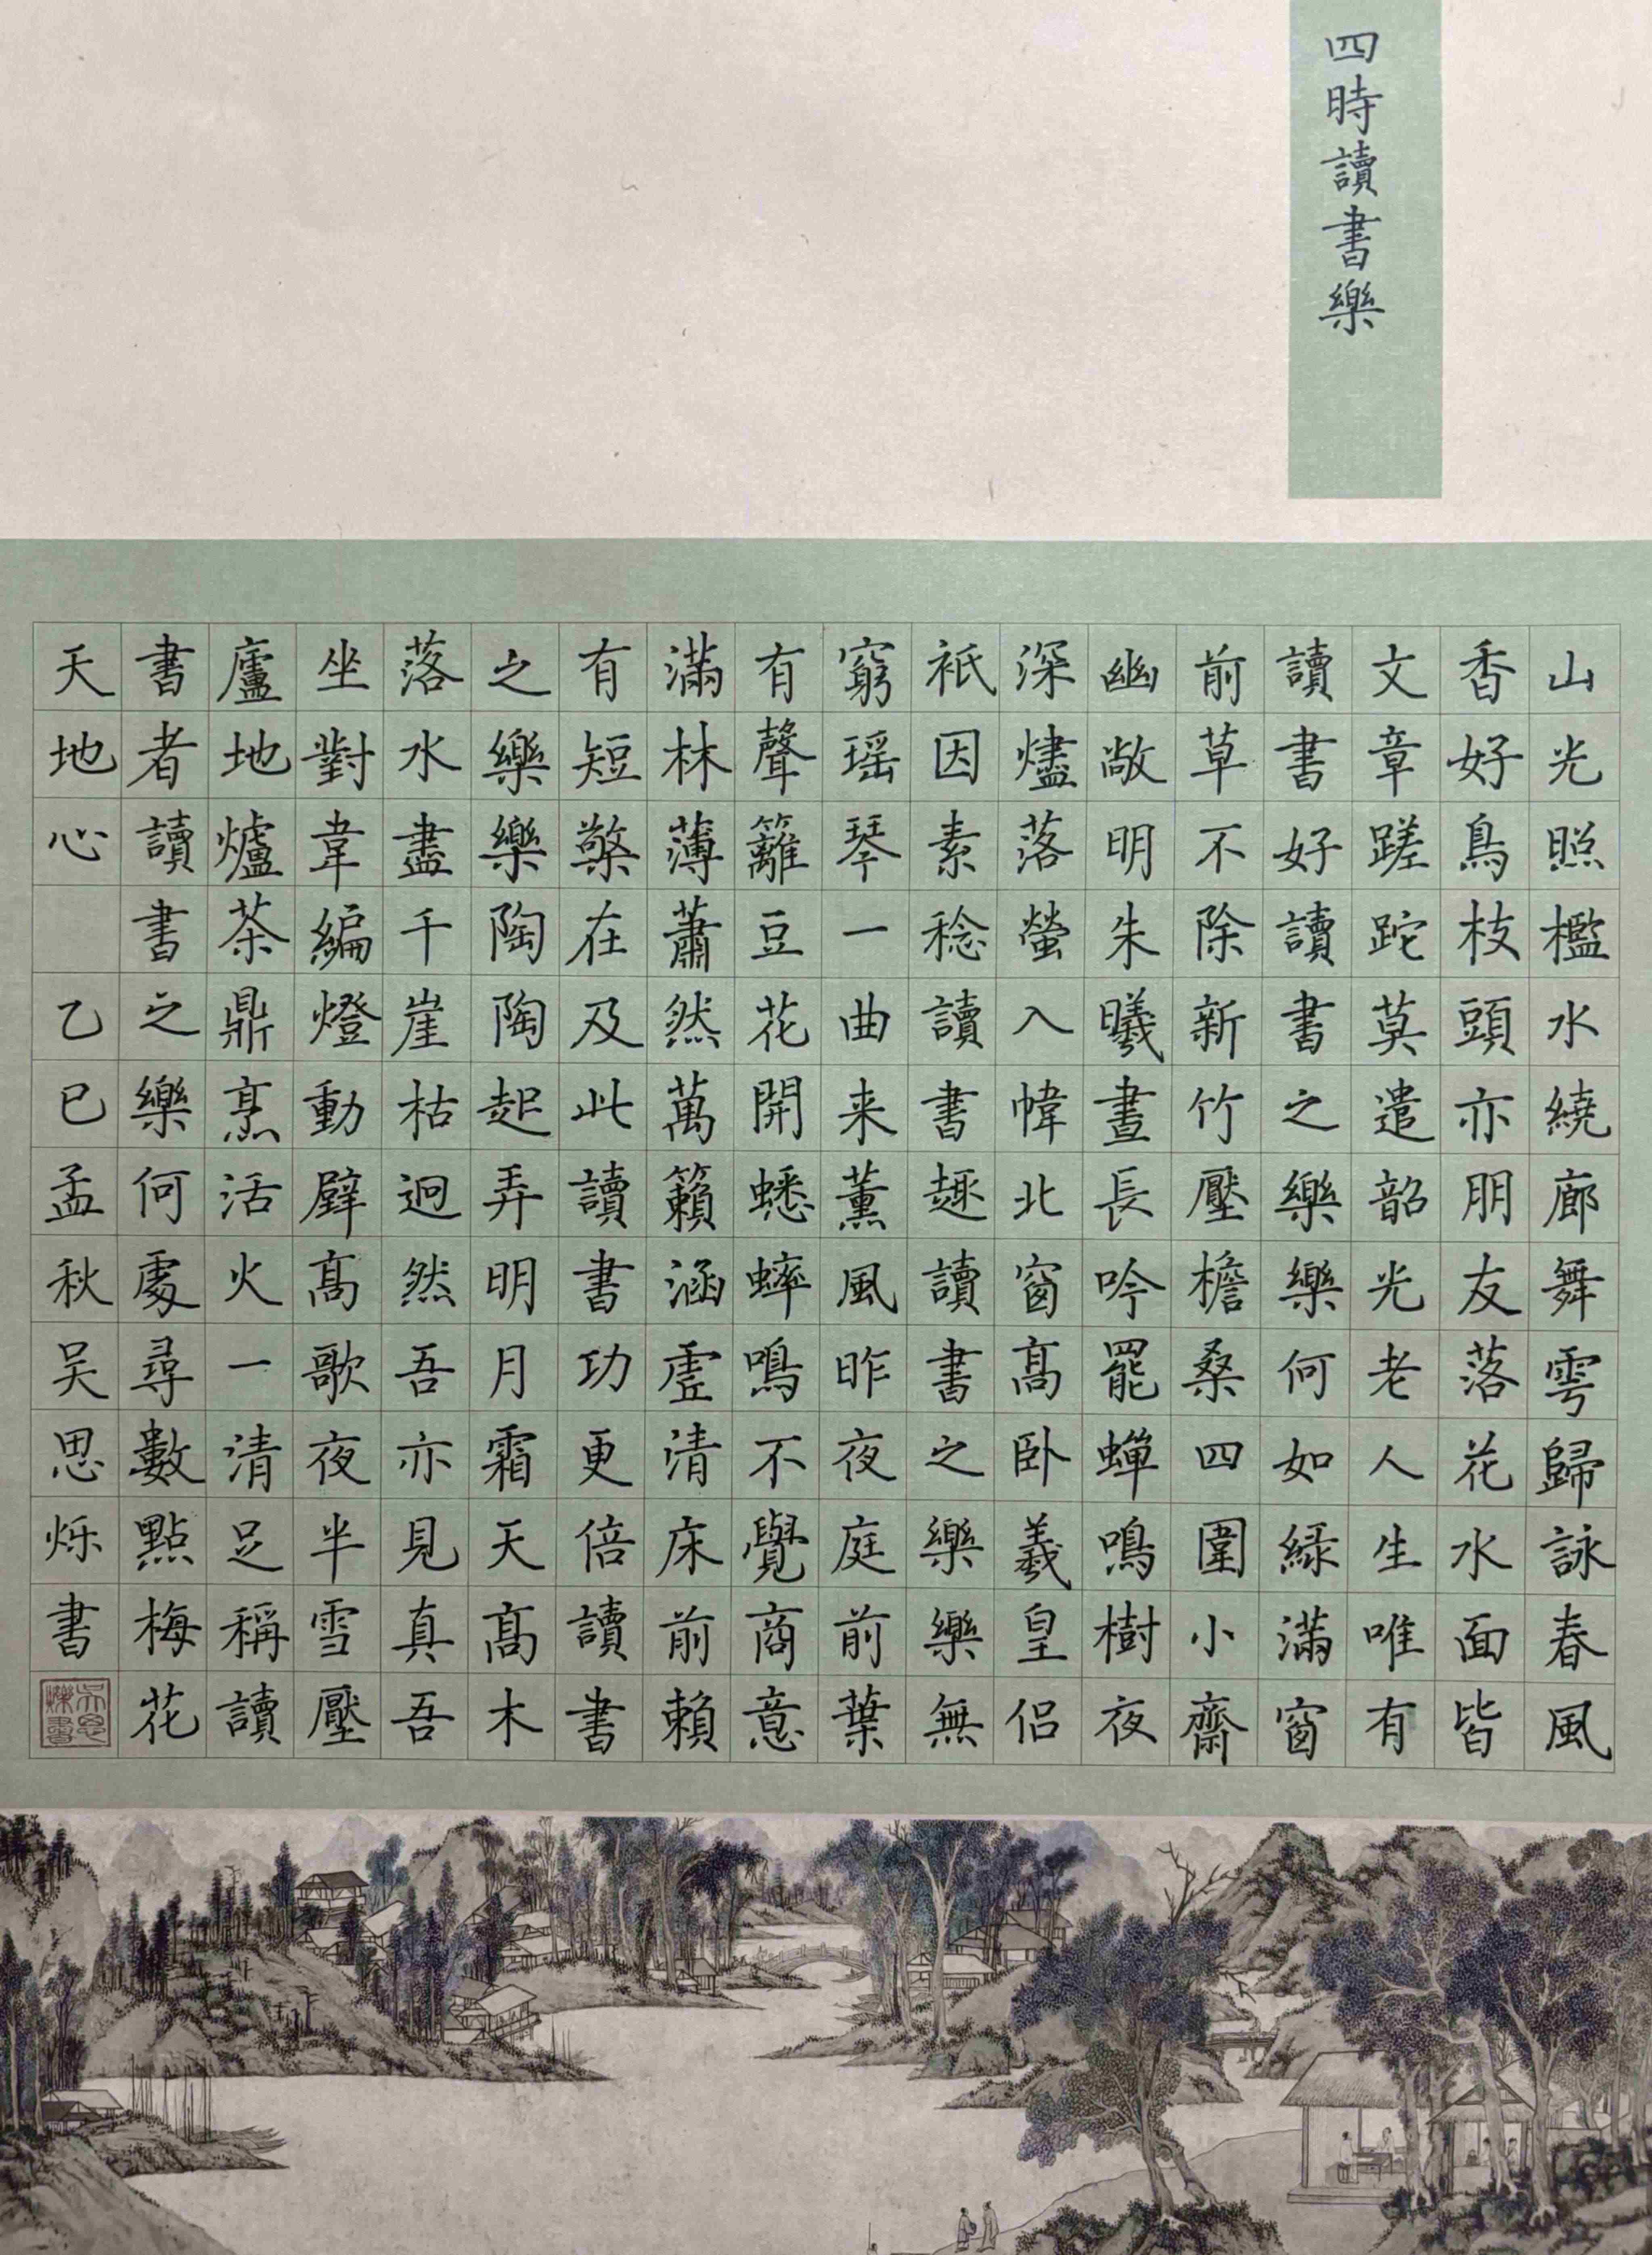 四時讀書樂
山光照檻水繞廊舞雩歸詠春風
香好鳥枝頭亦朋友落花水面皆
文章蹉跎莫遣韶光老人生唯有
讀書好讀書之樂樂何如緑滿窗
前草不除新竹壓檐桑四圍小齋
幽敞明朱曦晝長吟罷蟬鳴樹夜
深燼落螢入幃北窗髙卧羲皇侣
祇因素稔讀書趣讀書之樂樂無
窮瑶琴一曲来薰風昨夜庭前葉
有聲籬豆花開蟋蟀鳴不覺商意
滿林薄蕭然萬籟涵虛清床前賴
有短檠在及此讀書功更倍讀書
之樂樂陶陶起弄明月霜天髙木
落水盡千崖枯迥然吾亦見真吾
坐對韋編燈動壁髙歌夜半雪壓
廬地爐茶鼎烹活火一清足稱讀
書者讀書之樂何處尋數點梅花
天地心 乙巳孟秋吴思烁書
吳思爍書